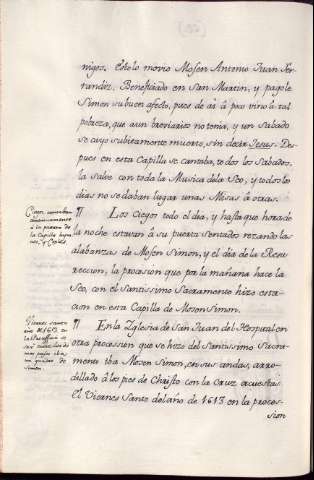 nigos. Esto lo movio Mosen Antonio Juan Fer-
randiz, Beneficiado en San Martin, y pagole
Simon su buen afecto, pues de ai â poco vino â tal
pobreza, que aun breviario no tenia, y un sabado
se cayo subitamente muerto, sin decir Jesus. Des-
pues en esta Capilla se cantaba, todos los Sabados,
la salve con toda la Musica dela Seo, y todos los
dias no se daban lugar unas Misas â otras.
¶ Los Ciegos todo el dia, y hasta que hora de
la noche estavan â su puerta sentados rezando las
alabanzas de Mosen Simon, y el dia de la Resu-
rreccion, la procesion que por la mañana hace la
Seo, con el Santissimo Sacramento hizo esta-
cion en esta Capilla de Mosen Simon.
¶ En la Iglesia de San Juan del Hospital en
otra procession que se hizo del Santissimo Sacra-
mento iba Mosen Simon, en sus andas, arro-
dillado â los pies de Christo con la Cruz acuestas.
El Viernes Santo del año de 1613 en la proces-
sion
Ciegos
â la puerta de
la Capilla
Viernes santo
año de 1613 en
Simon